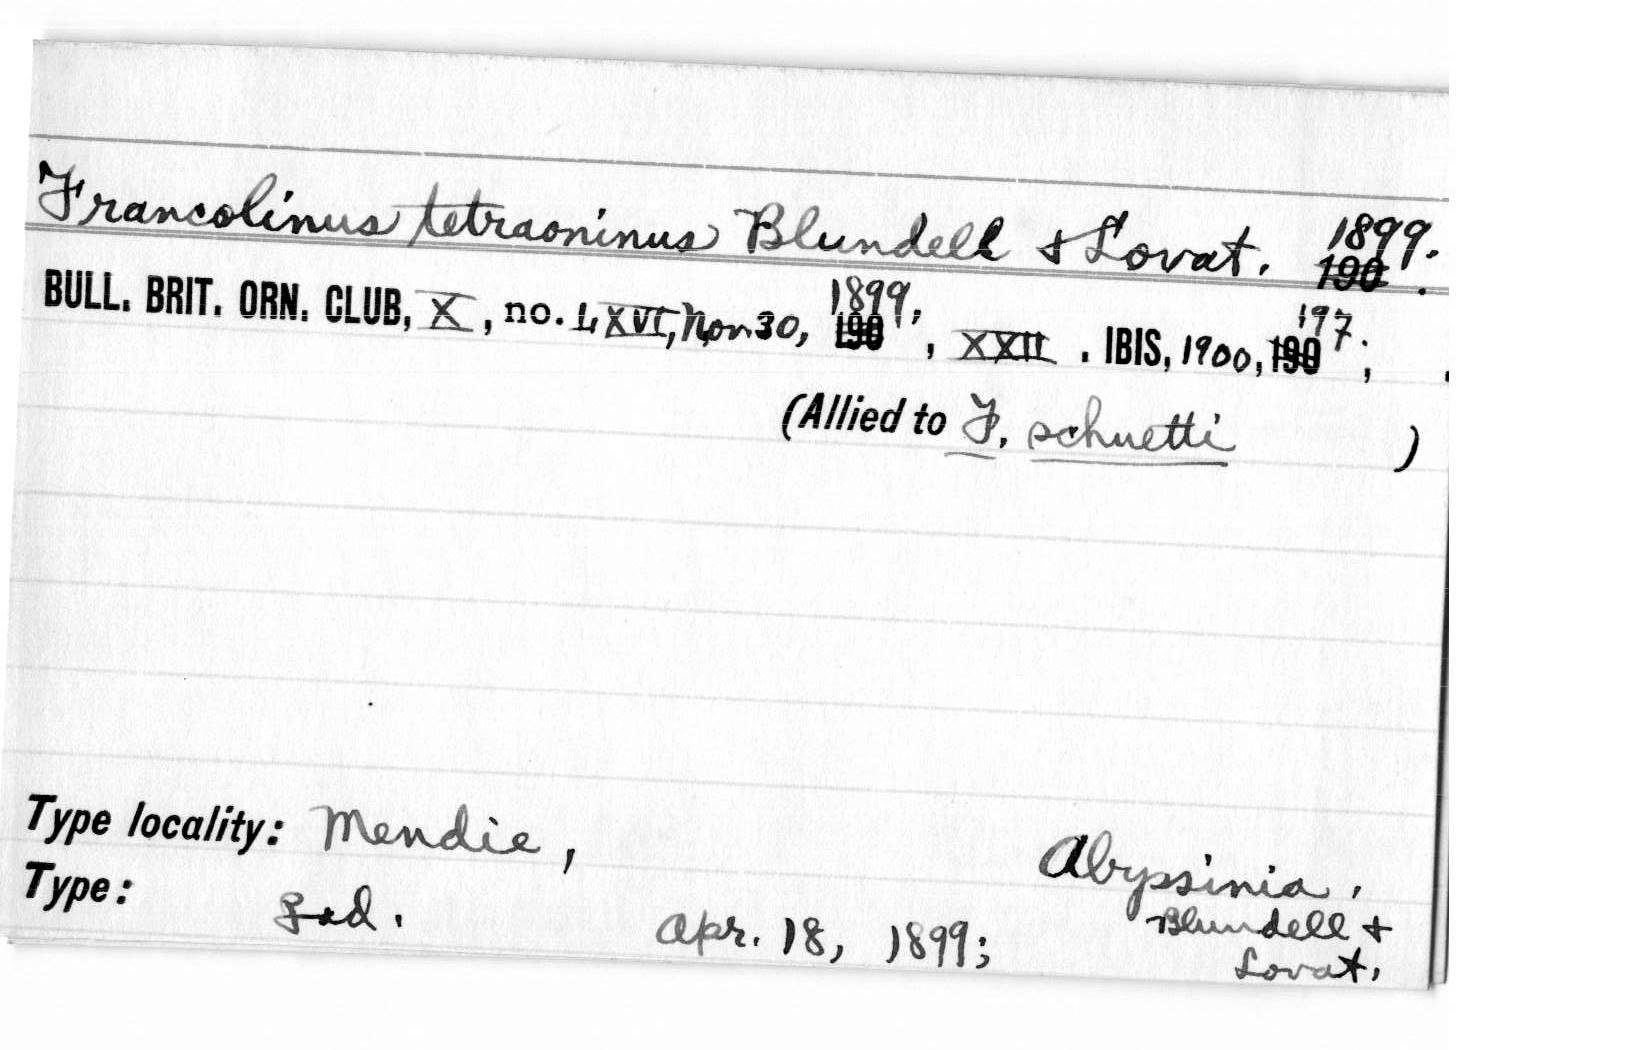 Francolinus tetraoninus Blundell & Lovat. 1899.
190 .
BULL. BRIT. ORN. CLUB, X, no. LXVI, Nov. 30, 1899, 190 , XXII . IBIS, 1900, 190 197; .
(Allied to F. schuetti )
Type locality: Mendie, Abyssinia.
Type: ad. Apr. 18, 1899; Blundell &
Lovat.